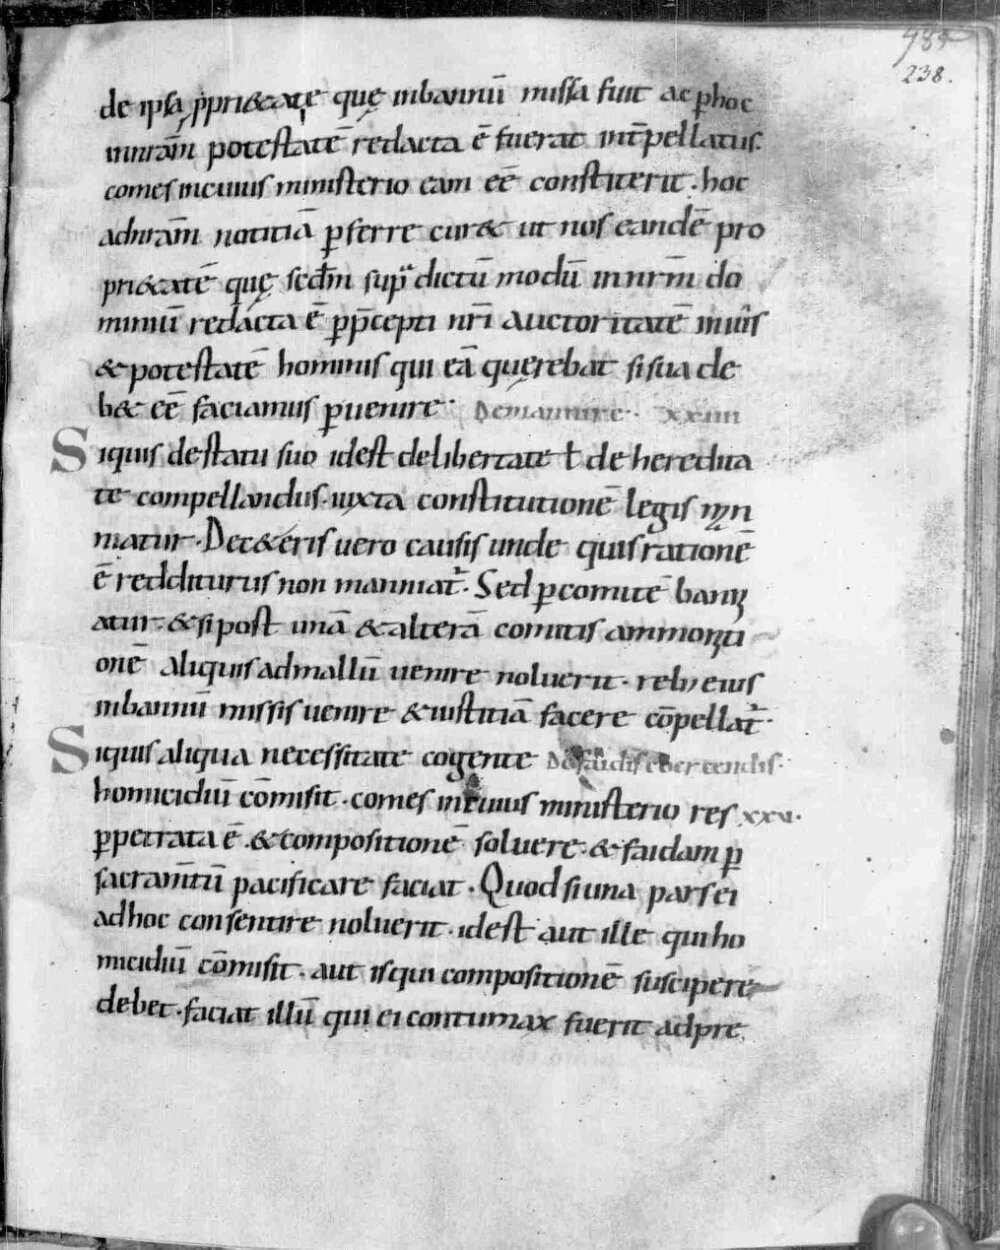 985
238.
de ipsa ꝓpri&ate quę inbannū missa fuit ac ꝑ hoc
innr̄am potestatē redacta ē fuerat int̄pellatus.
comes incuius ministerio eam eē constiterit. hoc
adnr̄am notitiā ꝑferre cur& ut nos eandē pro
pri&atē quę sed̄m supradictū modū innr̄m do
miniū redacta ē ꝑ p̄cepti nr̄i auctoritatē in iuris
& potestatē hominis qui eā quęrebat si sua de
b& eē faciamus ꝑuenire. Demannire. xxiiii
Siquis destatu suo idest delibertate ł de heredita
te compellandus. iuxta constitutionē legis man
niatur. Dec&eris uero causis unde quis rationē
ē redditurus non manniat᷑. Sed ꝑ comitē bann
atur. & si post unā & alterā comitis ammoniti
onē aliquis admallū uenire noluerit. reb; eius
inbannū missis uenire & iustitiā facere cōpellat᷑.
Siquis aliqua necessitate cogente De faidis cohercendis.
homicidiū cōmisit. comes incuius ministerio res xxv.
ꝑpetrata ē. & compositionē soluere. & faidam ꝑ
sacram̄tū pacificare faciat. Quod si una pars ei
adhoc consentire noluerit. idest aut ille qui ho
micidiū cōmisit. aut is qui compositionē suscipere
debet. faciat illū qui ei contumax fuerit ad pre